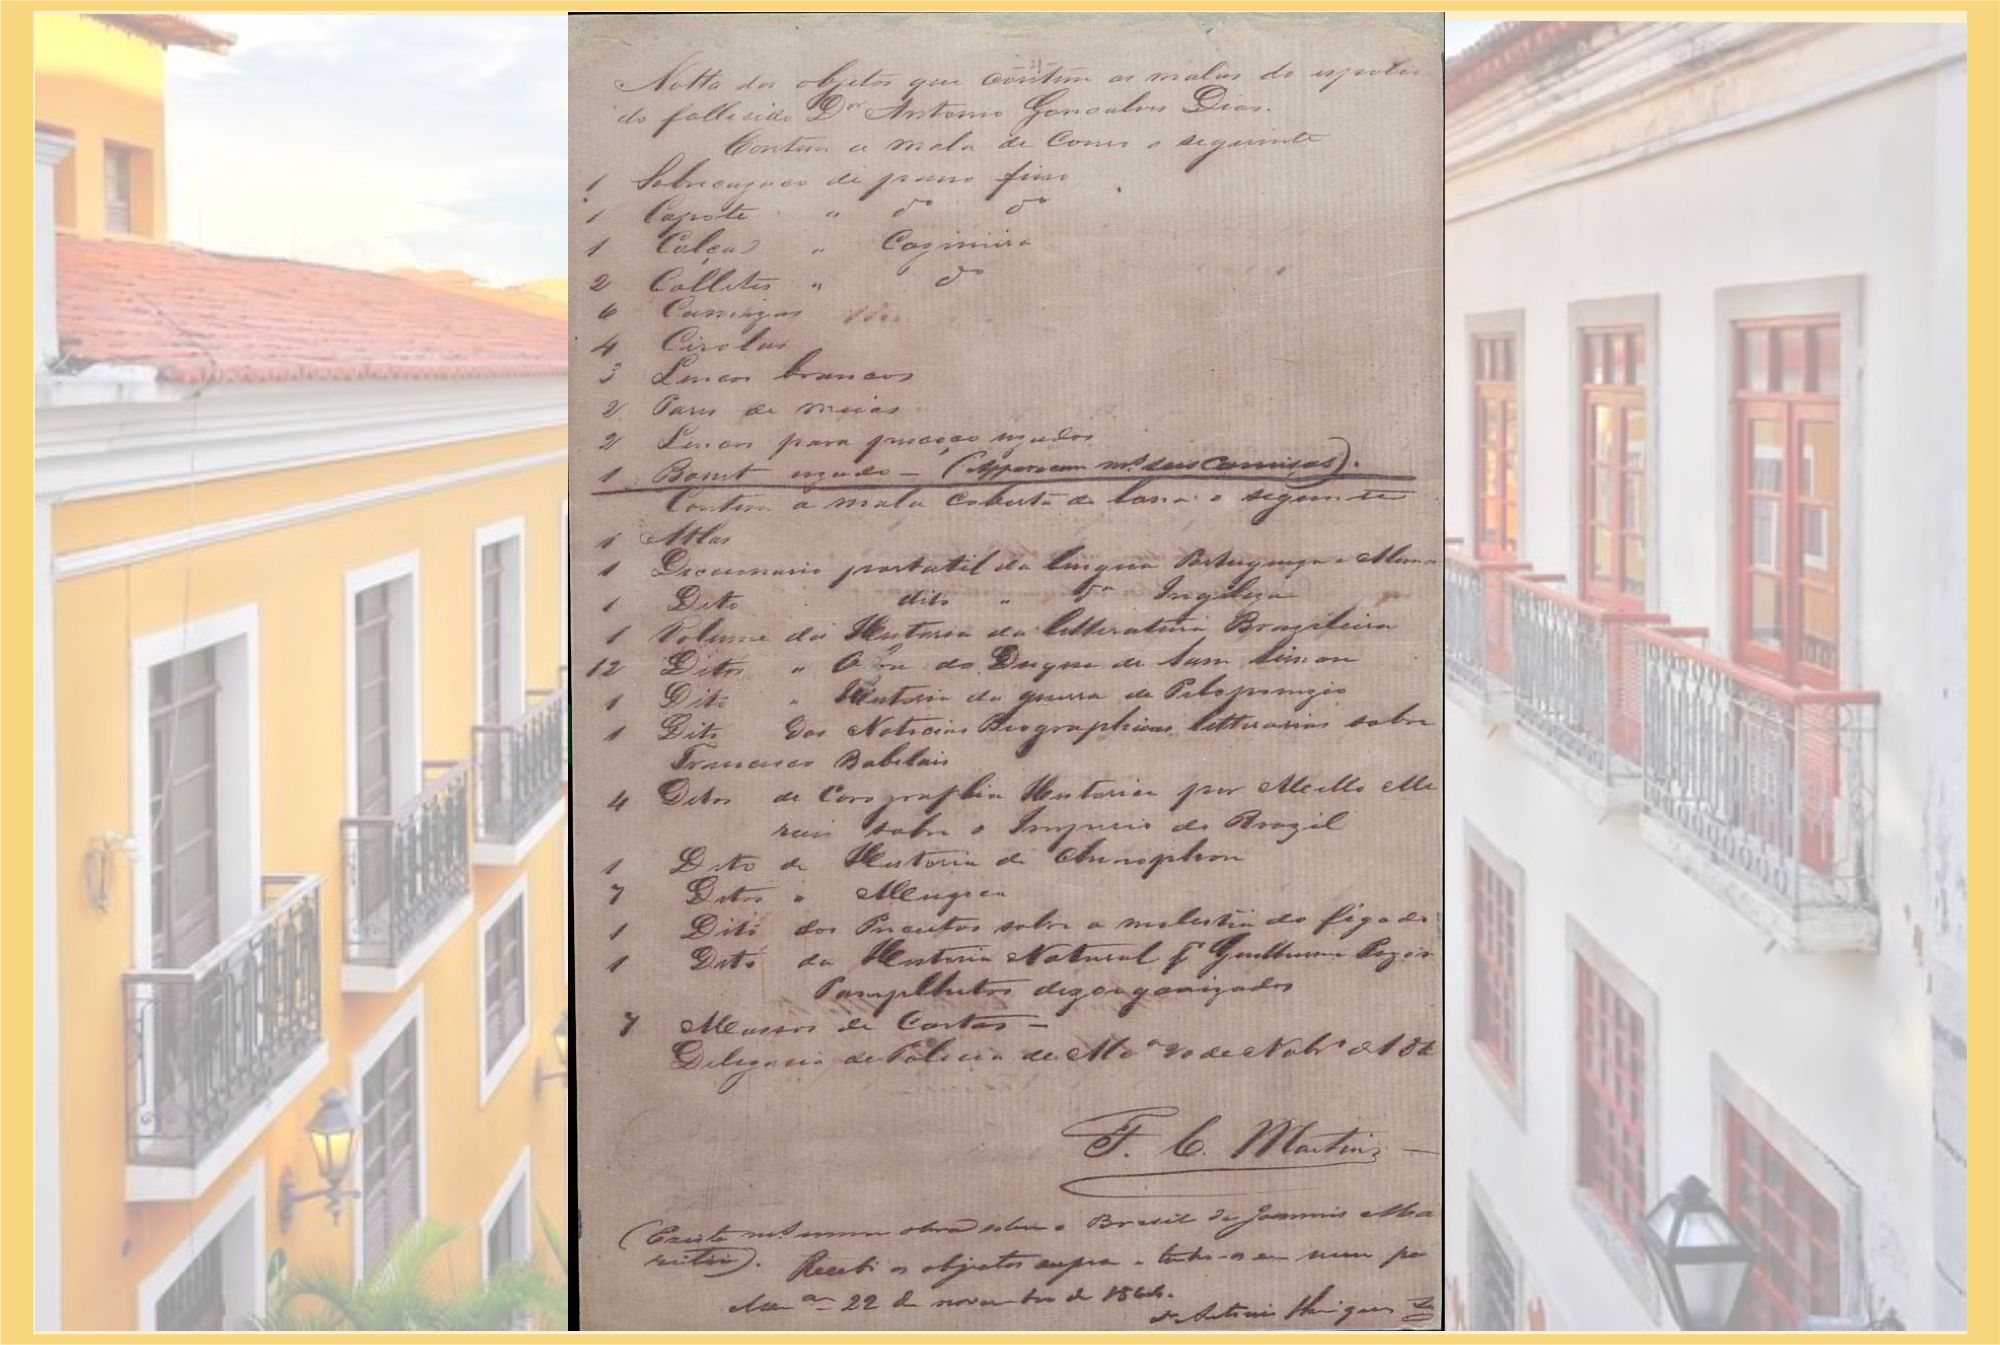 Notta dos objetos que contem as malas do espolio
do fallesido Dor Antonio Gonsalves Dias.
Contem a mala de Couro o seguinte
1 Sobrecazaco de pano fino
1 Capote " do do
1 Calça " Cazimira
2 Colletes " do
6 Camizas
4 Cirolas
3 Lencos brancos
2 Pares de meias
2 Lencos para pescoço uzados
1 Bonet uzado – (Apparecem ms. seis Camisas).
Contem a mala coberta de lona o seguinte
1 Atlas
1 Diccionario portatil da lingua Portugueza e Alem
1 Dito dito " da Ingleza
1 Volume da Historia da litteratura Brazileira
12 Ditos " Obra do Duque de Sam Simon
1 Dito " Historia da guerra de Peloponezio
1 Dito das Noticias Biographicas litterarias sobre
Francisco Rabelais
4 Ditos de Corographia Historica por Mello Mo
raes sobre o Imperio do Brazil
1 Dito de Historia de Chenophon
7 Ditos " Mengica
1 Dito dos sobre a molestia do figado
1 Dito da Historia Natural pr Guilherme Pizon
Pamphletos dezorganizados
7 Massos de Cartas –
Delegacia de Policia de Mo 20 de Nobro d 186
F. C. Martins
(Existe ms. uma obra sobre o Brasil de Joannis Ma
). Recebi os objectos supra e tenho-os em meu po
22 de novembro de 1864.
Dr Antonio Henriques